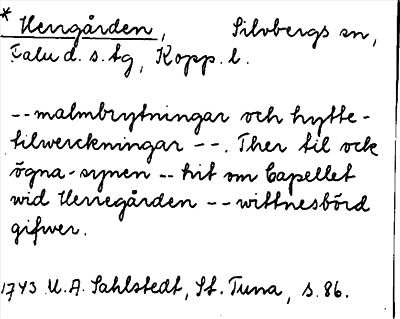 * Herrgården, Silvbergs sn,
Falu d. s. tg, Kopp. l.
--malmbrytningar och hytte-
tilwerckningar --. Ther til ock
ögna-synen -- hit om Capellet
wid Herregården -- wittnesbörd
gifwer.
1743 U. A. Sahlstedt, St. Tuna, s. 86.